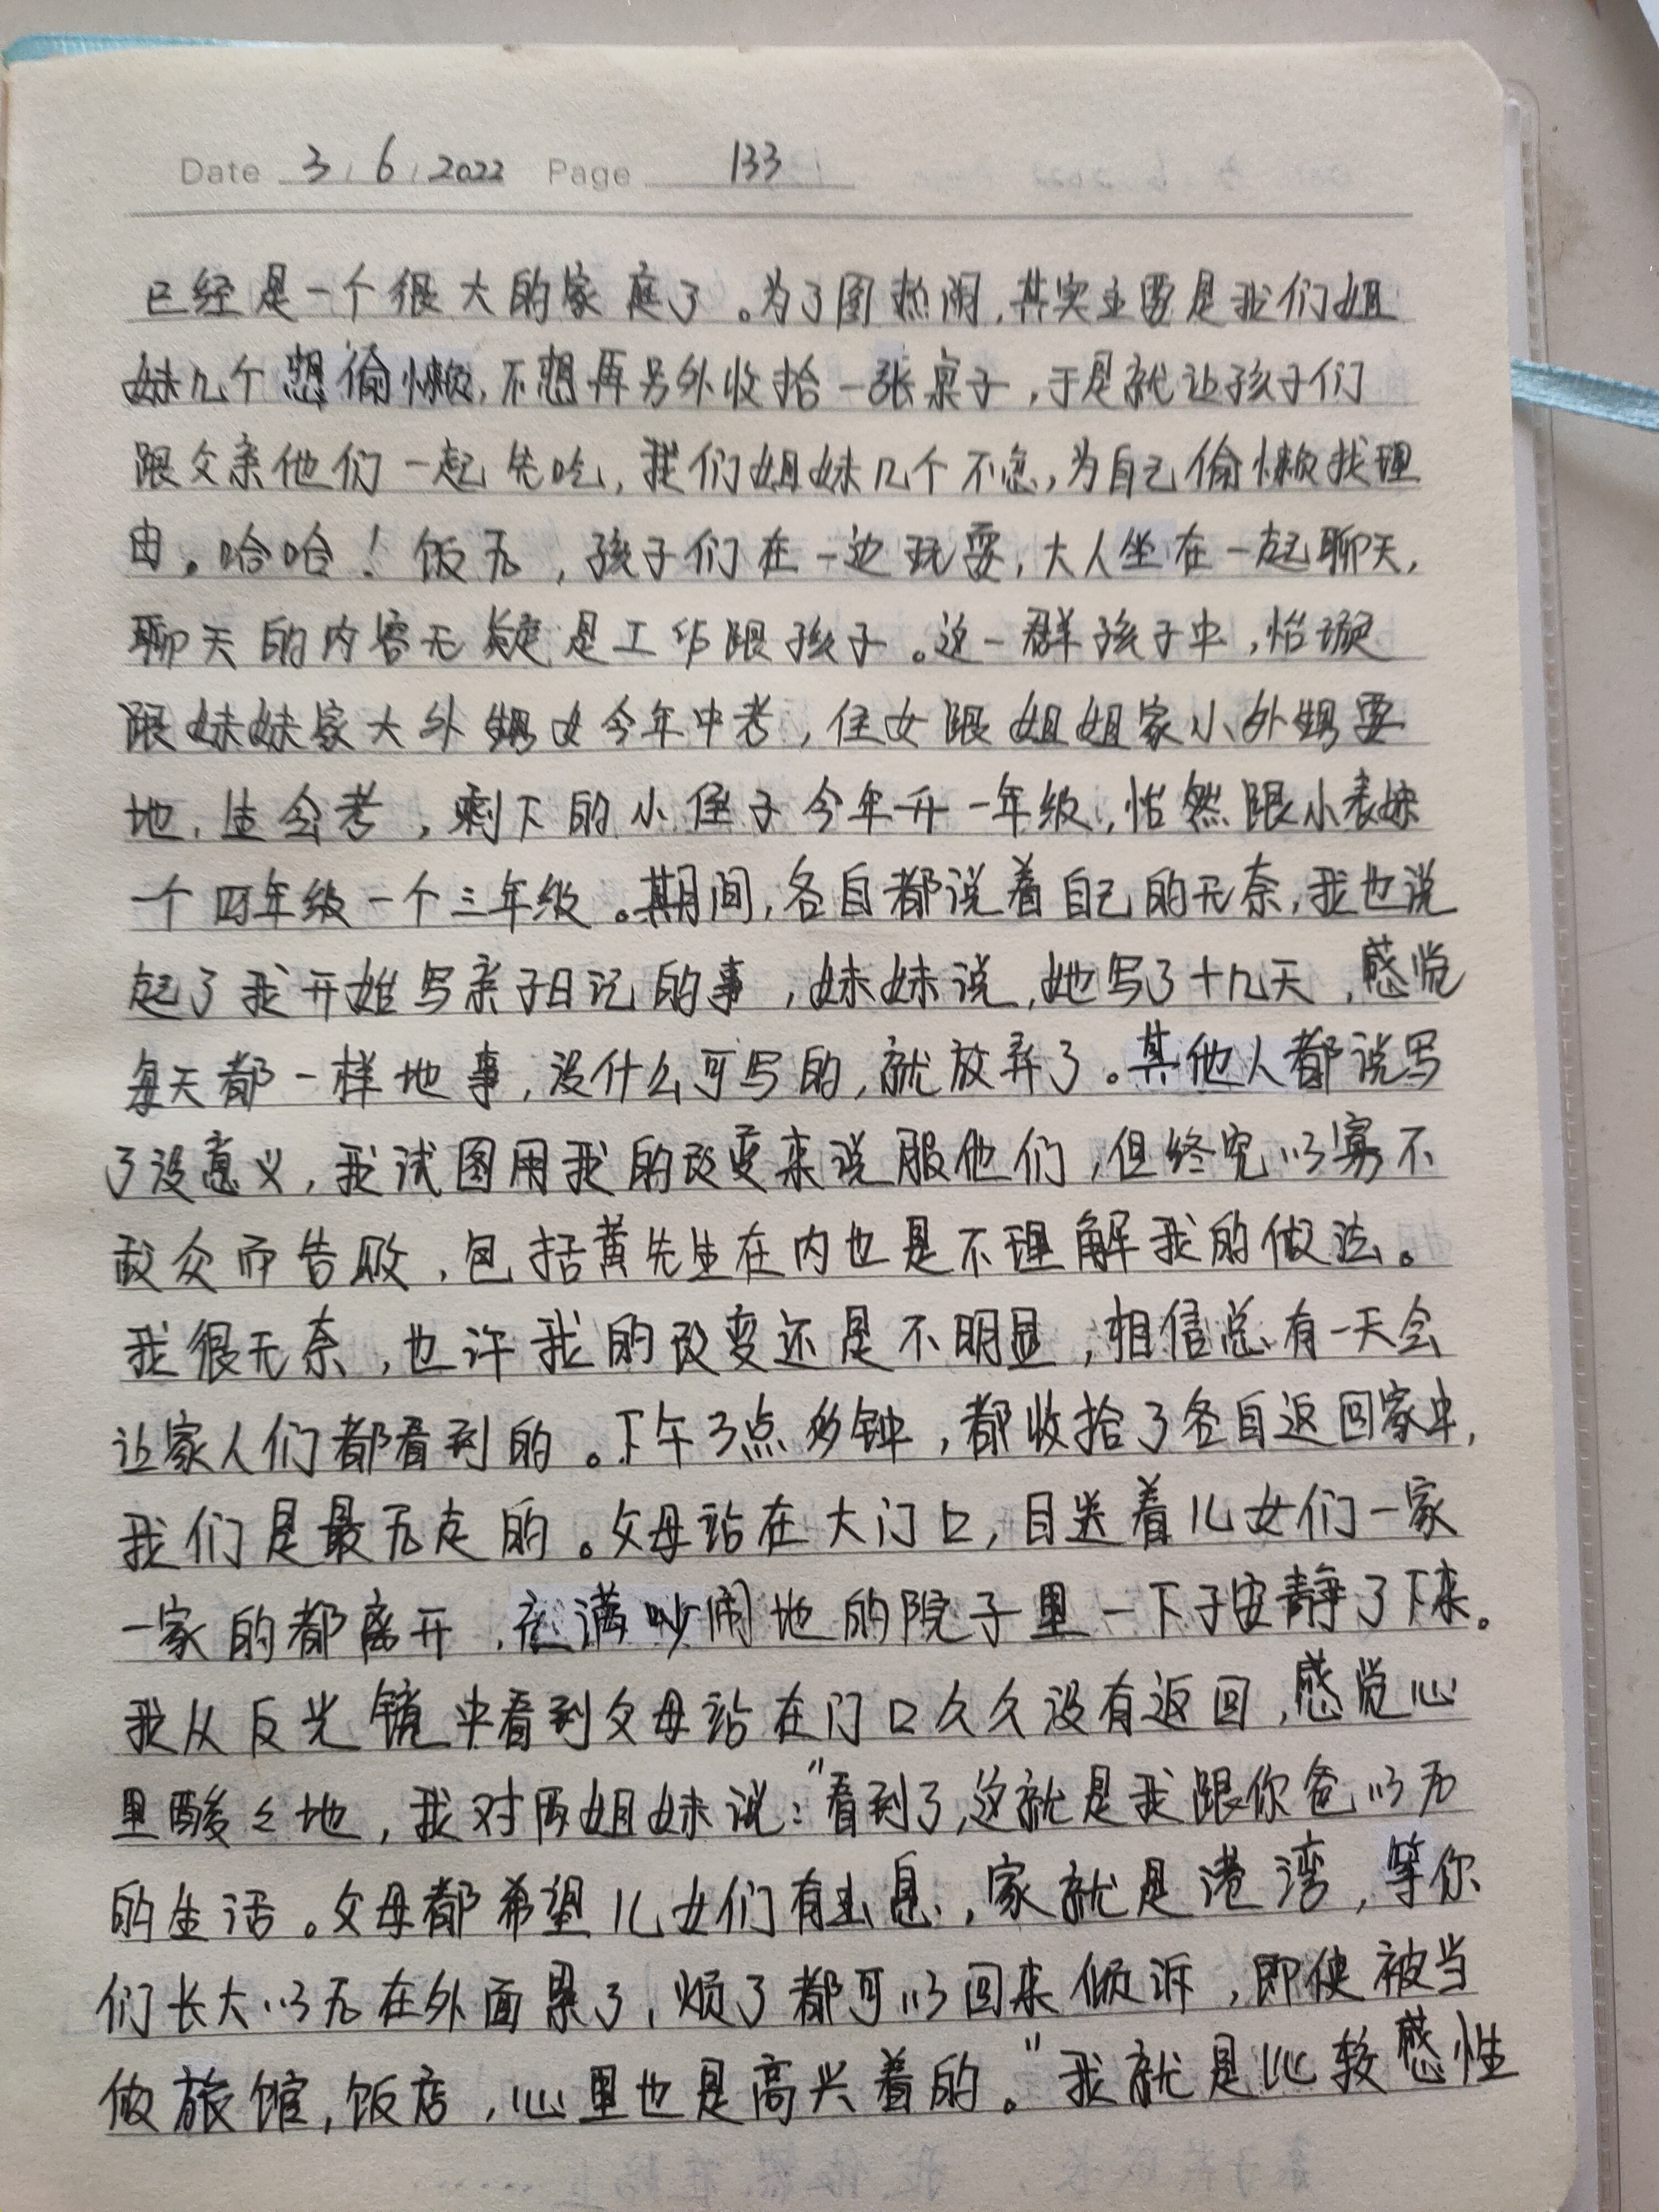 Date 3 / 6 / 2022 Page 133
已经是一个很大的家庭了。为了图热闹,其实主要是我们姐
妹几个想偷懒,不想再另外收拾一张桌子,于是就让孩子们
跟父亲他们一起先吃,我们姐妹几个不急,为自己偷懒找理
由。哈哈!饭后,孩子们在一边玩耍,大人坐在一起聊天,
聊天的内容无疑是工作跟孩子。这一群孩子中,怡璇
跟妹妹家大外甥女今年中考,侄女跟姐姐家小外甥要
地,生会考,剩下的小侄子今年升一年级,怡然跟小表妹
一个四年级一个三年级。期间,各自都说着自己的无奈,我也说
起了我开始写亲子日记的事,妹妹说,她写了十几天,感觉
每天都一样地事,没什么可写的,就放弃了。其他人都说写
了没意义,我试图用我的改变来说服他们,但终究以寡不
敌众而告败,包括黄先生在内也是不理解我的做法。
我很无奈,也许我的改变还是不明显,相信总有一天会
让家人们都看到的。下午3点多钟,都收拾了各自返回家中,
我们是最后走的。父母站在大门口,目送着儿女们一家
一家的都离开,充满吵闹地的院子里一下子安静了下来。
我从反光镜中看到父母站在门口久久没有返回,感觉心
里酸々地,我对两姐妹说:"看到了,这就是我跟你爸以后
的生活。父母都希望儿女们有出息,家就是港湾,等你
们长大以后在外面累了,烦了都可以回来倾诉,即使被当
做旅馆,饭店,心里也是高兴着的。"我就是比较感性